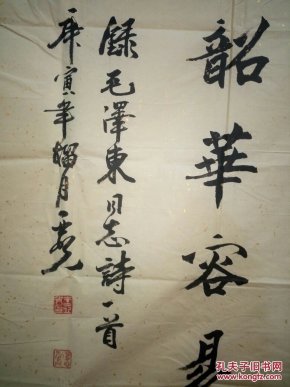 韶華容易
錄毛澤東同志詩一首
庚寅年榴月
孔夫子旧书网